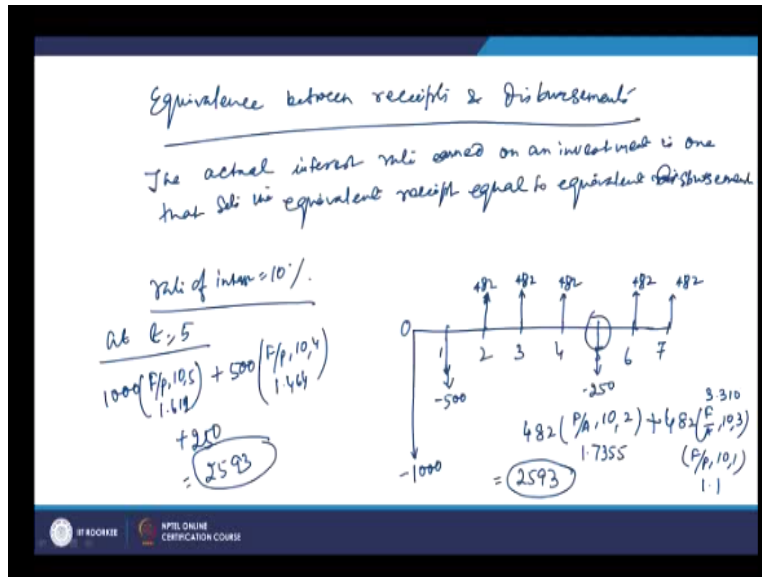 Equivalence between receipts & Disbursements
The actual interest rate earned on an investment is one
that sets the equivalent receipt equal to equivalent Disbursement
rate of inter = 10%.
at t = 5
1000(F/P,10,5) + 500(F/P,10,4)
1.611 1.464
+250
= 2593
+482 +482 +482 +482 +482
0 1 2 3 4 6 7
-500 -250
-1000
3.310
482(P/A,10,2) + 482(F/A,10,3)
1.7355 (F/P,10,1)
1.1
= 2593
IIT ROORKEE
NPTEL ONLINE
CERTIFICATION COURSE